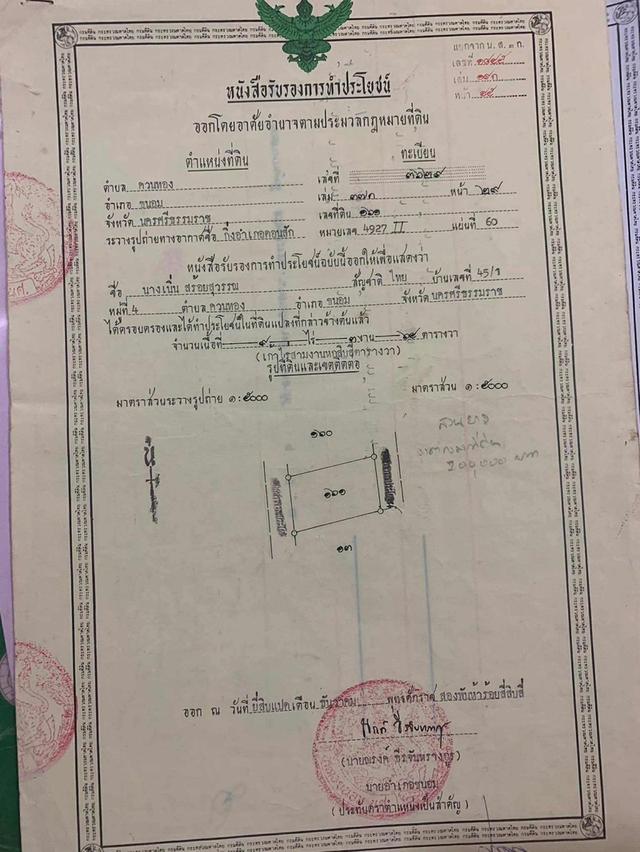 แยกจาก น.ส. ๓ ก.
เลขที่
เล่ม
หน้า
หนังสือรับรองการทำประโยชน์
ออกโดยอาศัยอำนาจตามประมวลกฎหมายที่ดิน
ตำแหน่งที่ดิน
ทะเบียน
ตำบล ควนทอง เลขที่ ๓๖๒๙
อำเภอ ขนอม เล่ม ๓๗ก หน้า ๒๙
จังหวัด นครศรีธรรมราช เลขที่ดิน ๑๖๑
ระวางรูปถ่ายทางอากาศชื่อ กิ่งอำเภอดอนสัก หมายเลข 4927 II แผ่นที่ 60
หนังสือรับรองการทำประโยชน์ฉบับนี้ออกให้เพื่อแสดงว่า
ชื่อ นางเนิ่น สร้อยสุวรรณ สัญชาติ ไทย บ้านเลขที่ 45/1
หมู่ที่ 4 ตำบล ควนทอง อำเภอ ขนอม จังหวัด นครศรีธรรมราช
ได้ครอบครองและได้ทำประโยชน์ในที่ดินแปลงที่กล่าวข้างต้นแล้ว
จำนวนเนื้อที่ ๙ ไร่ ๓ งาน ตารางวา
รูปที่ดินและเขตติดต่อ
มาตราส่วนระวางรูปถ่าย ๑:๕๐๐๐ มาตราส่วน ๑:๕๐๐๐
สวนยาง
๑๖๐
น
๑๖๑
๑๓
ออก ณ วันที่ ยี่สิบแปด เดือน ธันวาคม พุทธศักราช สองพันห้าร้อยสี่สิบสี่
นายอำเภอขนอม
(ประทับตราตำแหน่งเป็นสำคัญ)